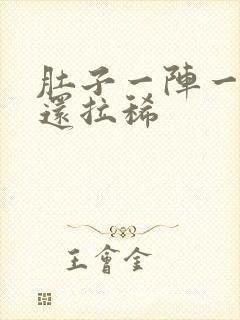 肚子一陣一
還拉稀
王會金